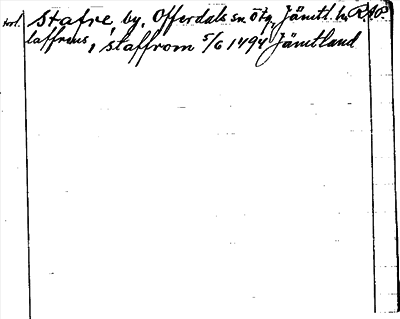 Stafre, by, Offerdals sn. Ötg. Jämtl. h. RAP.
i staffrom 5/6 1494 Jämtland